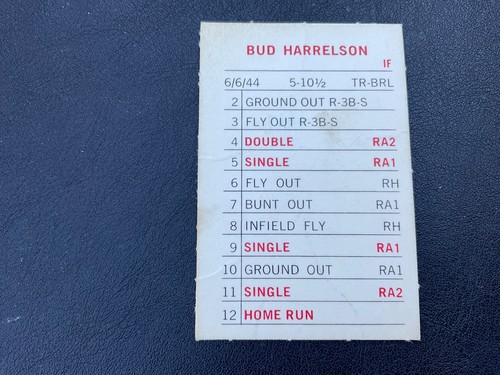 BUD HARRELSON
IF
6/6/44 5-10½ TR-BRL
2 GROUND OUT R-3B-S
3 FLY OUT R-3B-S
4 DOUBLE RA2
5 SINGLE RA1
6 FLY OUT RH
7 BUNT OUT RA1
8 INFIELD FLY RH
9 SINGLE RA1
10 GROUND OUT RA1
11 SINGLE RA2
12 HOME RUN